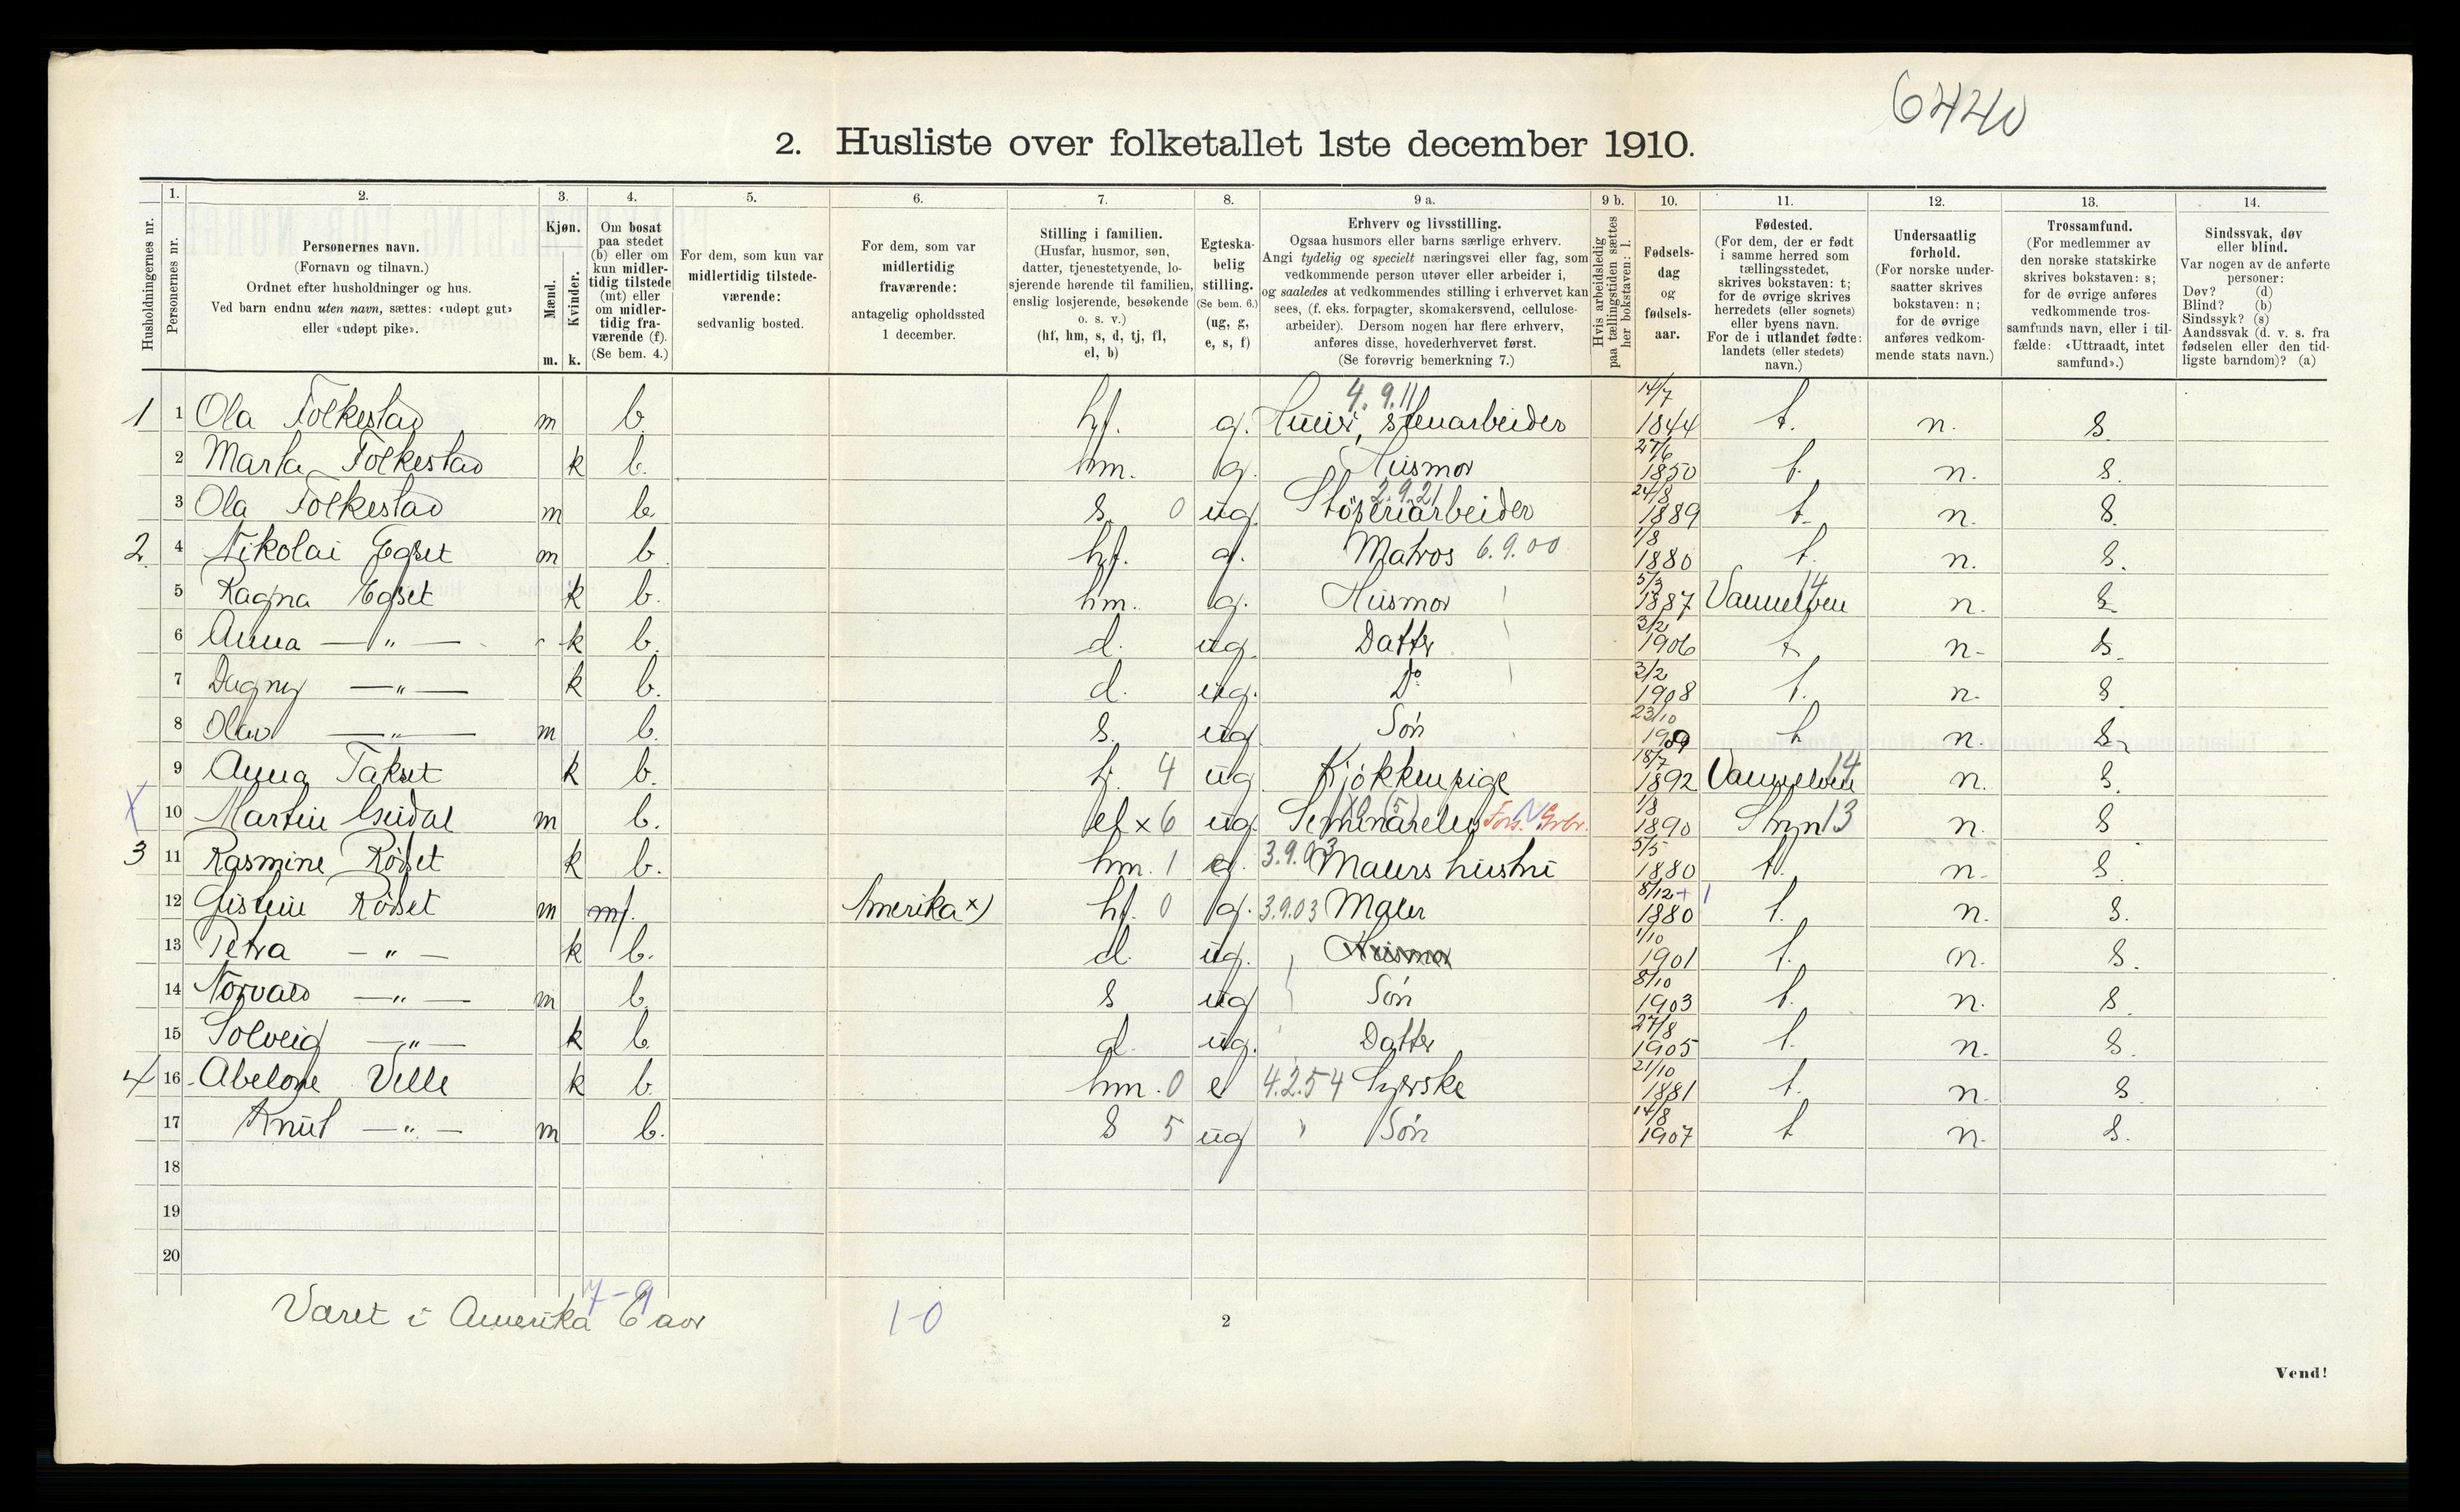 6440
2. Husliste over folketallet 1ste december 1910.
Husholdningernes nr.
1. Personernes nr.
2. Personernes navn.
(Fornavn og tilnavn.)
Ordnet efter husholdninger og hus.
Ved barn endnu uten navn, sættes: «udøpt gut»
eller «udøpt pike».
3. Kjøn.
Mænd. m.
Kvinder. k.
4. Om bosat
paa stedet
(b) eller om
kun midler-
tidig tilstede
(mt) eller
om midler-
tidig fra-
værende (f).
(Se bem. 4.)
5. For dem, som kun var
midlertidig tilstede-
værende:
sedvanlig bosted.
6. For dem, som var
midlertidig
fraværende:
antagelig opholdssted
1 december.
7. Stilling i familien.
(Husfar, husmor, søn,
datter, tjenestetyende, lo-
sjerende hørende til familien,
enslig losjerende, besøkende
o. s. v.)
(hf, hm, s, d, tj, fl,
el, b)
8. Egteska-
belig
stilling.
(Se bem. 6.)
(ug, g,
e, s, f)
9 a. Erhverv og livsstilling.
Ogsaa husmors eller barns særlige erhverv.
Angi tydelig og specielt næringsvei eller fag, som
vedkommende person utøver eller arbeider i,
og saaledes at vedkommendes stilling i erhvervet kan
sees, (f. eks. forpagter, skomakersvend, cellulose-
arbeider). Dersom nogen har flere erhverv,
anføres disse, hovederhvervet først.
(Se forøvrig bemerkning 7.)
9 b. Hvis arbeidsledig
paa tællingstiden sættes
her bokstaven: l.
10. Fødsels-
dag
og
fødsels-
aar.
11. Fødested.
(For dem, der er født
i samme herred som
tællingsstedet,
skrives bokstaven: t;
for de øvrige skrives
herredets (eller sognets)
eller byens navn.
For de i utlandet fødte:
landets (eller stedets)
navn.)
12. Undersaatlig
forhold.
(For norske under-
saatter skrives
bokstaven: n;
for de øvrige
anføres vedkom-
mende stats navn.)
13. Trossamfund.
(For medlemmer av
den norske statskirke
skrives bokstaven: s;
for de øvrige anføres
vedkommende tros-
samfunds navn, eller i til-
fælde: «Uttraadt, intet
samfund».)
14. Sindssvak, døv
eller blind.
Var nogen av de anførte
personer:
Døv? (d)
Blind? (b)
Sindssyk? (s)
Aandssvak (d. v. s. fra
fødselen eller den tid-
ligste barndom)? (a)
1 1 Ola Folkestad m b. hf. g. 4.9.11 stenarbeider 14/7 1844 t. n. s.
2 Marta Folkestad k b. hm. g. Husmor 27/6 1850 t. n. s.
3 Ola Folkestad m b. s. 0 ug. 2.9.21 Støperiarbeider 24/8 1889 t. n. s.
2 4 Nikolai Egset m b. hf. g. Matros 6.9.00 1/8 1880 t. n. s.
5 Ragna Egset k b. hm. g. Husmor 5/3 1887 Vannelven 14 n. s.
6 Anna — " — k b. d. ug. Datter 3/2 1906 t n. s.
7 Dagny — " — k b. d. ug. Do 3/2 1908 t. n. s.
8 Olav — " — m b. s. ug Søn 23/10 1909 t n. s.
9 Anna Takset k b. tj. 4 ug Kjøkkenpige 18/7 1892 Vannelven 14 n. s.
X 10 Martin m b. el x 6 ug. Seminarelev Fors. 1/8 1890 13 n. s
3 11 Rasmine Rødset k b. hm. 1 g. 3.9.03 Malers hustru 5/5 1880 t. n. s.
12 Rødset m mf. Amerika x) hf. 0 g. 3.9.03 Maler 8/12 + 1 1880 t. n. s.
13 Petra — " — k b. d. ug. Husmor 1/10 1901 t. n. s.
14 Norvald — " — m b. s ug Søn 8/10 1903 t. n. s.
15 Solveig — " — k b. d. ug. Datter 27/8 1905 t. n. s.
4 16 Abelone Velle k b. hm. 0 e 4.2.54 Syerske 21/10 1881 t. n. s
17 Knut — " — m b. s 5 ug " Søn 14/8 1907 t n. s.
18
19
20
7-9
Været i Amerika 6 aar
1-0
2
Vend!